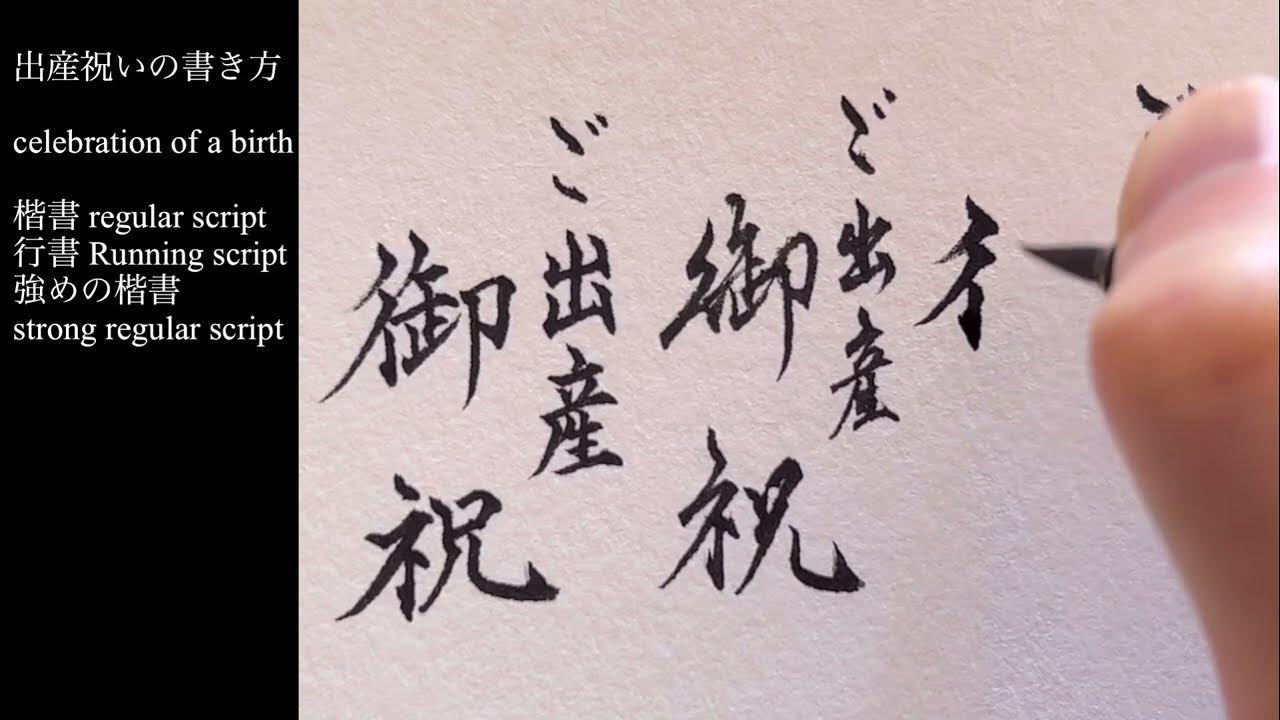 出産祝いの書き方
celebration of a birth
楷書 regular script
行書 Running script
強めの楷書
strong regular script
ご出産
御祝
ご出産
御祝